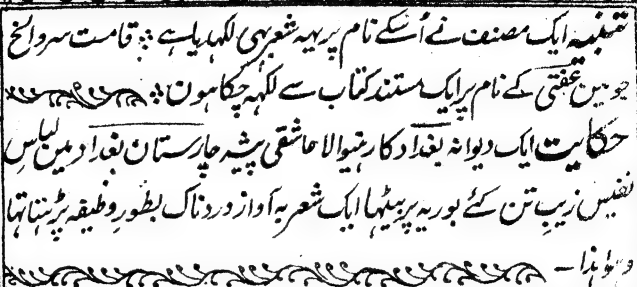 تنبیہ ایک مصنف نے اُسکے نام پر یہہ شعر بہی لکہدیا ہے ؞ قامت سرو الخ
جو مین عفتی کے نام پر ایک مستند کتاب سے لکہہ چکا ہون ؞
حکایت ایک دیوانہ بغداد کا رہنیوالا عاشقی پیشہ چارستان بغداد مین لباسِ
نفیس زیبِ تن کئے بوریہ پر بیٹہا ایک شعر بہ آواز دردناک بطور وظیفہ پڑہتا تہا
وہو ہذا ـ